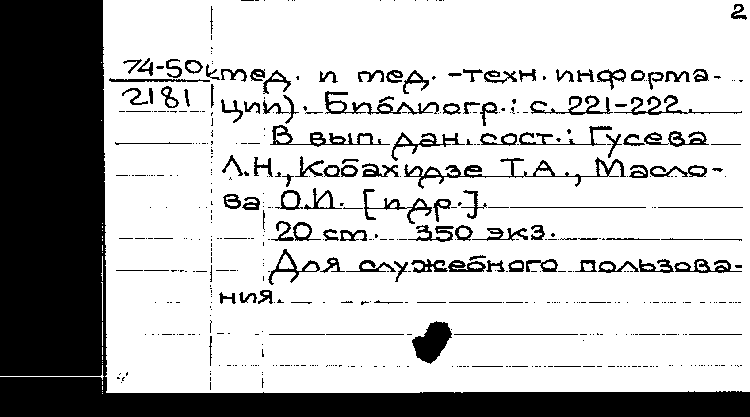 2
74-50к мед. и мед.-техн. информа-
2181 ции). Библиогр.: с. 221-222.
В вып. дан. сост.: Гусева
Л.Н., Кобахидзе Т.А., Масло-
ва О.И. [и др.].
20 см. 350 экз.
Для служебного пользова-
ния.